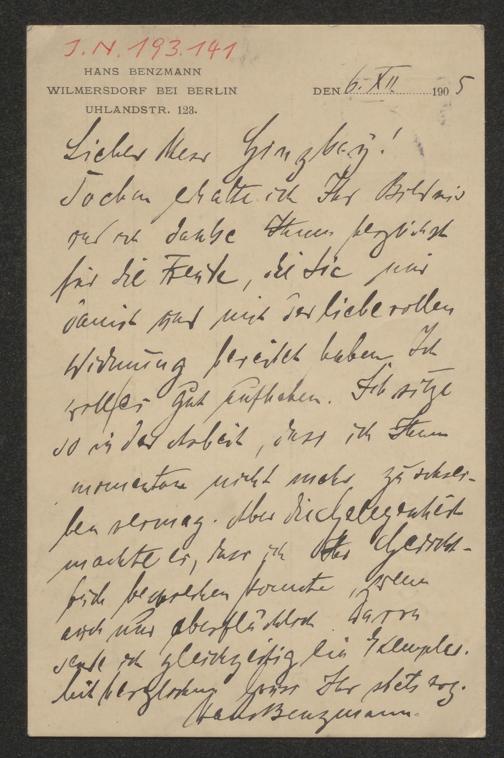 J.N. 193.141
HANS BENZMANN
WILMERSDORF BEI BERLIN
UHLANDSTR. 123.
DEN 6. XII 1905
Lieber Herr Ginzkey!
Soeben erhalte ich Ihr Bildnis
und ich danke Ihnen herzlichst
für die Freude, die Sie mir
damit und mit der liebevollen
Widmung bereitet haben. Ich
will es gut aufheben. Ich sitze
so in der Arbeit, dass ich Ihnen
momentan nicht mehr zu schrei-
ben vermag. Aber die Gelegenheit
machte es, dass ich Ihr Gedicht-
buch besprechen konnte, wenn
auch nur oberflächlich. Davon
sende ich gleichzeitig ein Exemplar.
Mit herzlichem Gruss Ihr stets erg.
Hans Benzmann.